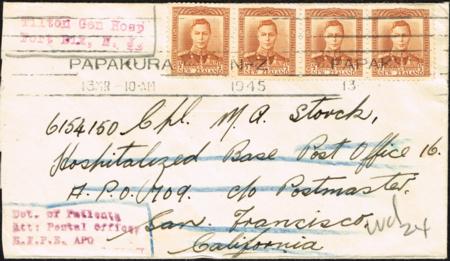 Tilton Gen Hosp
Fort Dix, N. J.
NEW ZEALAND NEW ZEALAND NEW ZEALAND NEW ZEALAND
PAPAKURA N.Z. PAPAK
13 MR - 10-AM 1945 13
6154150 Cpl. M. A. Storck,
Hospitalized Base Post Office 16.
A.P.O. 709. c/o Postmaster,
San Francisco,
California
Det. of Patients
Att: Postal Officer
APO